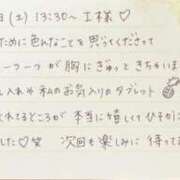 (土) 13:30～ I様♡
ために色んなことを思ってくださって
一つ一つが胸にぎゅっときちゃいま
入れや私のお気入りのタブレット
てれてるところが本当に嬉しくてひそか
した♡笑 次回も楽しみに待って